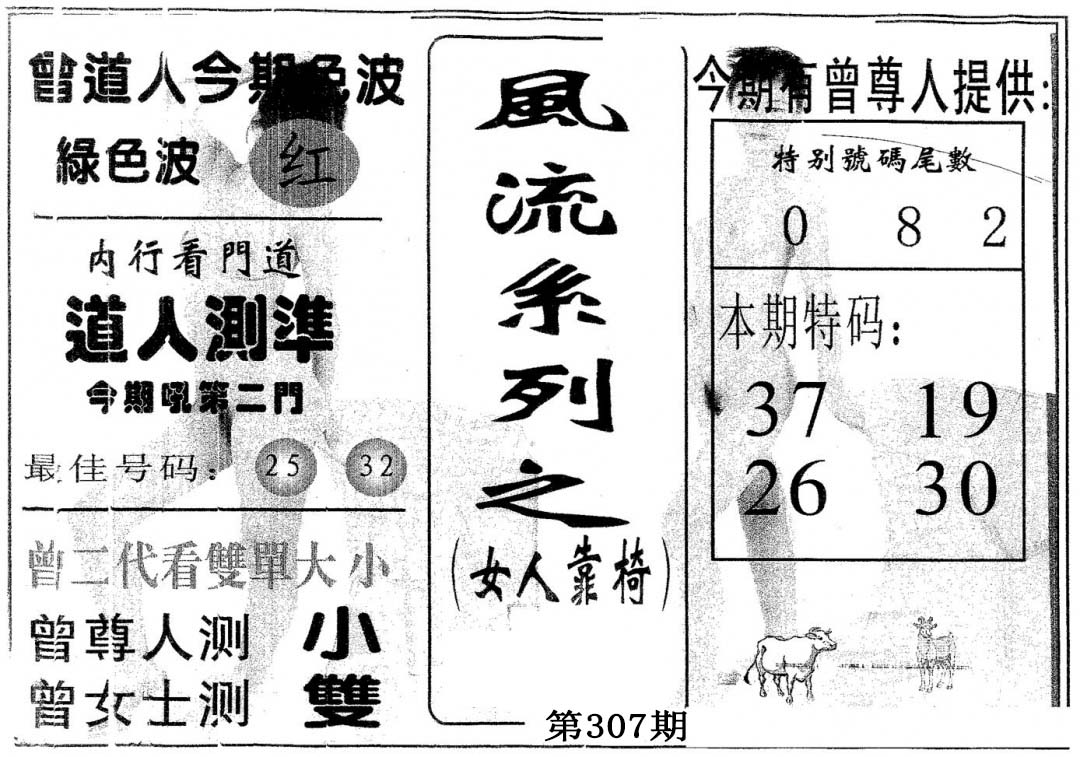 曾道人今期色波
綠色波 红
内行看門道
道人測準
今期吼第二門
最佳号码： 25 32
曾二代看雙單大小
曾尊人测 小
曾女士测 雙
風流系列之
（女人靠椅）
第307期
今期有曾尊人提供：
特别號碼尾數
0 8 2
本期特码：
37 19
26 30